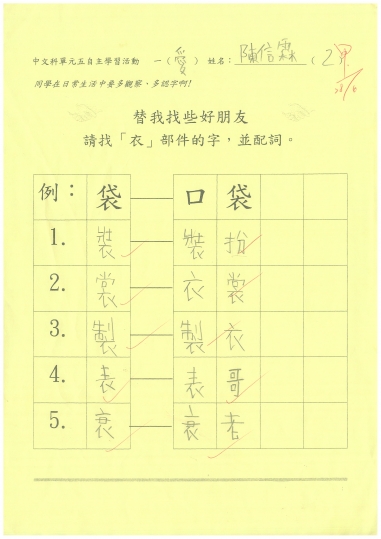 中文科單元五自主學習活動 一（愛） 姓名：陳信霖（2）
同學在日常生活中要多觀察，多認字啊！
替我找些好朋友
請找「衣」部件的字，並配詞。
例： 袋 口袋
1. 裝 裝扮
2. 裳 衣裳
3. 製 製衣
4. 表 表哥
5. 衰 衰老